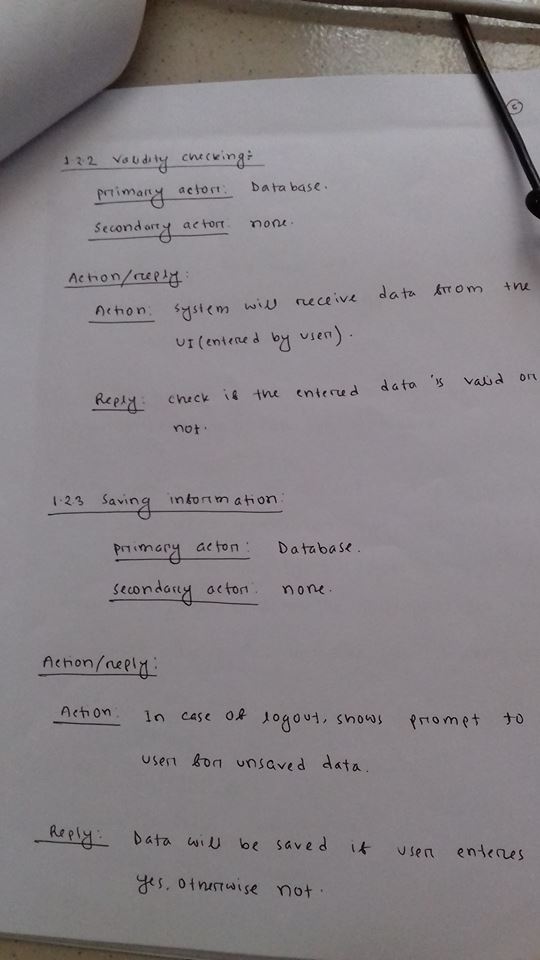 6
1.2.2 Validity checking:
Primary actor: Database.
Secondary actor: none.
Action/reply:
Action: System will receive data from the
UI (entered by user).
Reply: check if the entered data is valid or
not.
1.2.3 Saving information:
Primary actor: Database.
Secondary actor: none.
Action/reply:
Action: In case of logout, shows prompt to
user for unsaved data.
Reply: Data will be saved if user enteres
yes, otherwise not.